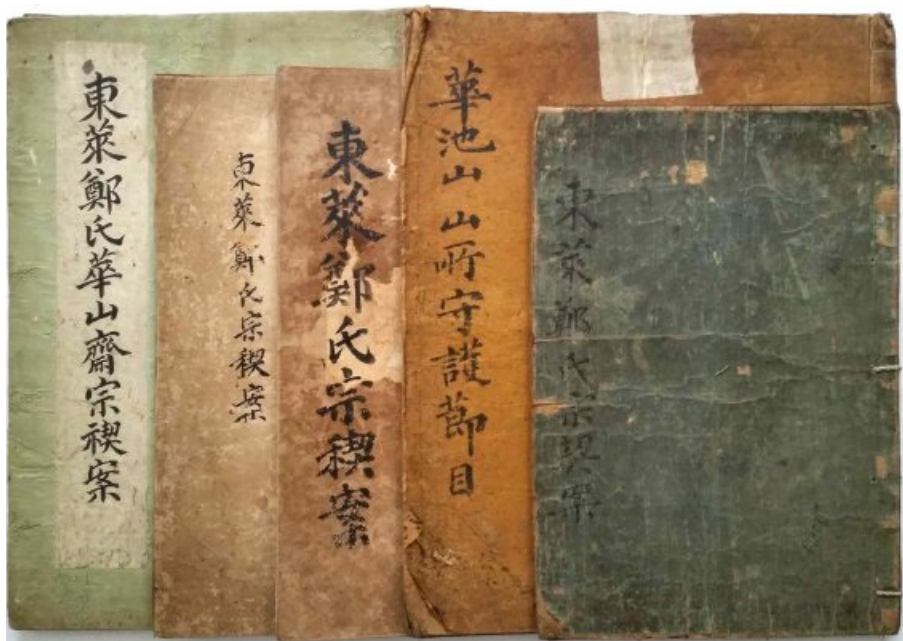 東萊鄭氏華山齋宗禊案
東萊鄭氏宗禊案
東萊鄭氏宗禊案
華池山山所守護節目
東萊鄭氏宗契案